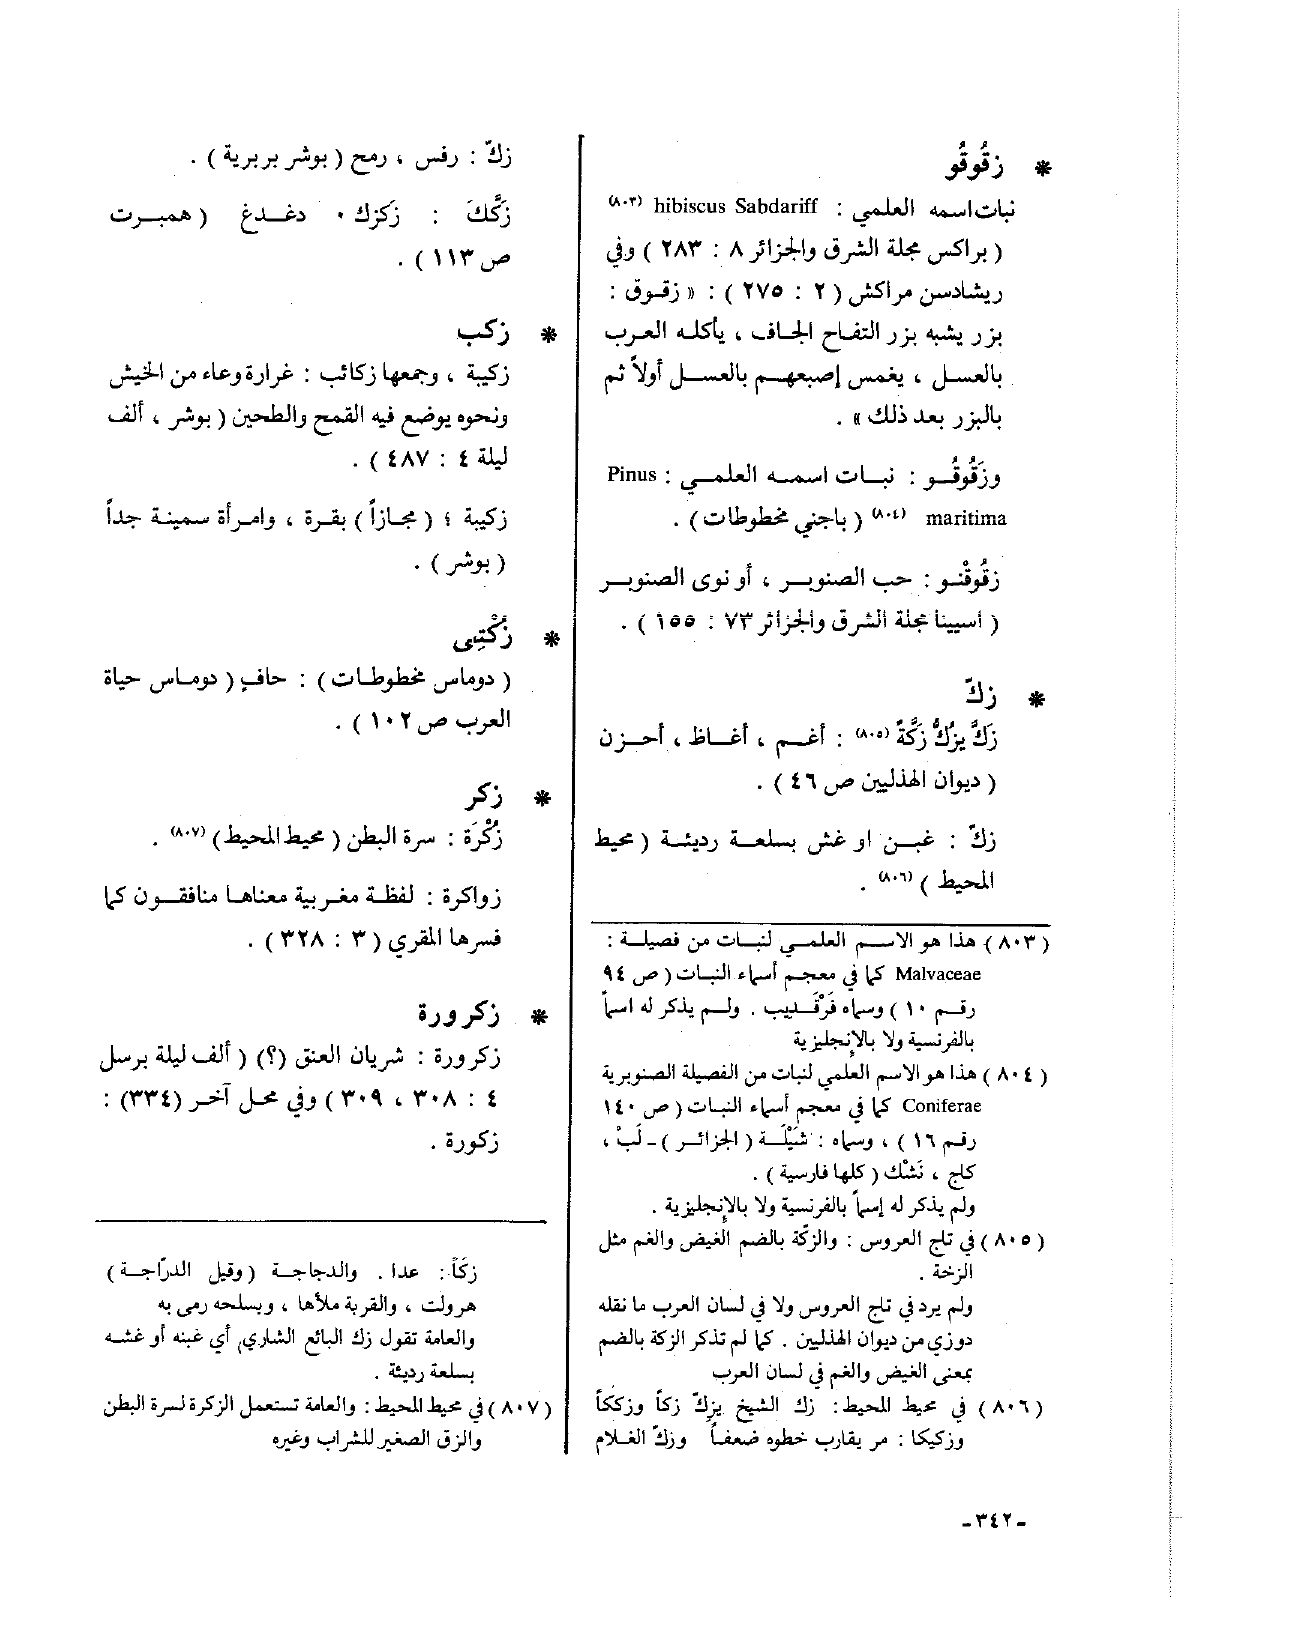 * زقُوقُو
نبات اسمه العلمي : hibiscus Sabdariff (٨٠٣)
( براكس مجلة الشرق والجزائر ٨ : ٢٨٣ ) وفي
ريشادسن مراكش ( ٢ : ٢٧٥ ) : « زقوق :
بزر يشبه بزر التفاح الجاف ، يأكله العرب
بالعسل ، يغمس إصبعهم بالعسل أولاً ثم
بالبزر بعد ذلك » .
وزَقُوقُو : نبات اسمه العلمي : Pinus
maritima (٨٠٤) ( باجني مخطوطات ) .
زقُوقْنو : حب الصنوبر ، أو نوى الصنوبر
( اسبينا مجلة الشرق والجزائر ٧٣ : ١٥٥ ) .
* زكّ
زَكَّ يزُكُّ زكَّةً (٨٠٥) : أغم ، أغاظ ، أحزن
( ديوان الهذليين ص ٤٦ ) .
زكّ : غبن او غش بسلعة رديئة ( محيط
المحيط ) (٨٠٦) .
( ٨٠٣ ) هذا هو الاسم العلمي لنبات من فصيلة :
Malvaceae كما في معجم أسماء النبات ( ص ٩٤
رقم ١٠ ) وسماه قَرْقَديب . ولم يذكر له اسماً
بالفرنسية ولا بالإنجليزية
( ٨٠٤ ) هذا هو الاسم العلمي لنبات من الفصيلة الصنوبرية
Coniferae كما في معجم أسماء النبات ( ص ١٤٠
رقم ١٦ ) ، وسماه : ( الجزائر ) - لَبْ ،
كاج ، نَشْك ( كلها فارسية ) .
ولم يذكر له إسماً بالفرنسية ولا بالإنجليزية .
( ٨٠٥ ) في تاج العروس : والزكّة بالضم الغيض والغم مثل
الزخة .
ولم يرد في تاج العروس ولا في لسان العرب ما نقله
دوزي من ديوان الهذليين . كما لم تذكر الزكة بالضم
بمعنى الغيض والغم في لسان العرب
( ٨٠٦ ) في محيط المحيط : زك الشيخ يزكّ زكاً وزككاً
وزكيكا : مر يقارب خطوه ضعفاً وزكّ الغلام
زكّ : رفس ، رمح ( بوشر بربرية ) .
زكَّكَ : زكزك . دغدغ ( همبرت
ص ١١٣ ) .
* زكب
زكيبة ، وجمعها زكائب : غرارة وعاء من الخيش
ونحوه يوضع فيه القمح والطحين ( بوشر ، ألف
ليلة ٤ : ٤٨٧ ) .
زكيبة ؛ ( مجازاً ) بقرة ، وامرأة سمينة جداً
( بوشر ) .
* زُكْتِى
( دوماس مخطوطات ) : حافٍ ( دوماس حياة
العرب ص ١٠٢ ) .
* زكر
زُكْرَة : سرة البطن ( محيط المحيط ) (٨٠٧) .
زواكرة : لفظة مغربية معناها منافقون كما
فسرها المقري ( ٣ : ٣٢٨ ) .
* زكرورة
زكرورة : شريان العنق (؟) ( ألف ليلة برسل
٤ : ٣٠٨ ، ٣٠٩ ) وفي محل آخر (٣٣٤) :
زكورة .
زكّاً : عدا . والدجاجة (وقيل الدرّاجة )
هرولت ، والقربة ملأها ، وبسلحه رمى به
والعامة تقول زك البائع الشاري أي غبنه أو غشه
بسلعة رديئة .
( ٨٠٧ ) في محيط المحيط : والعامة تستعمل الزكرة لسرة البطن
والزق الصغير للشراب وغيره
-٣٤٢-